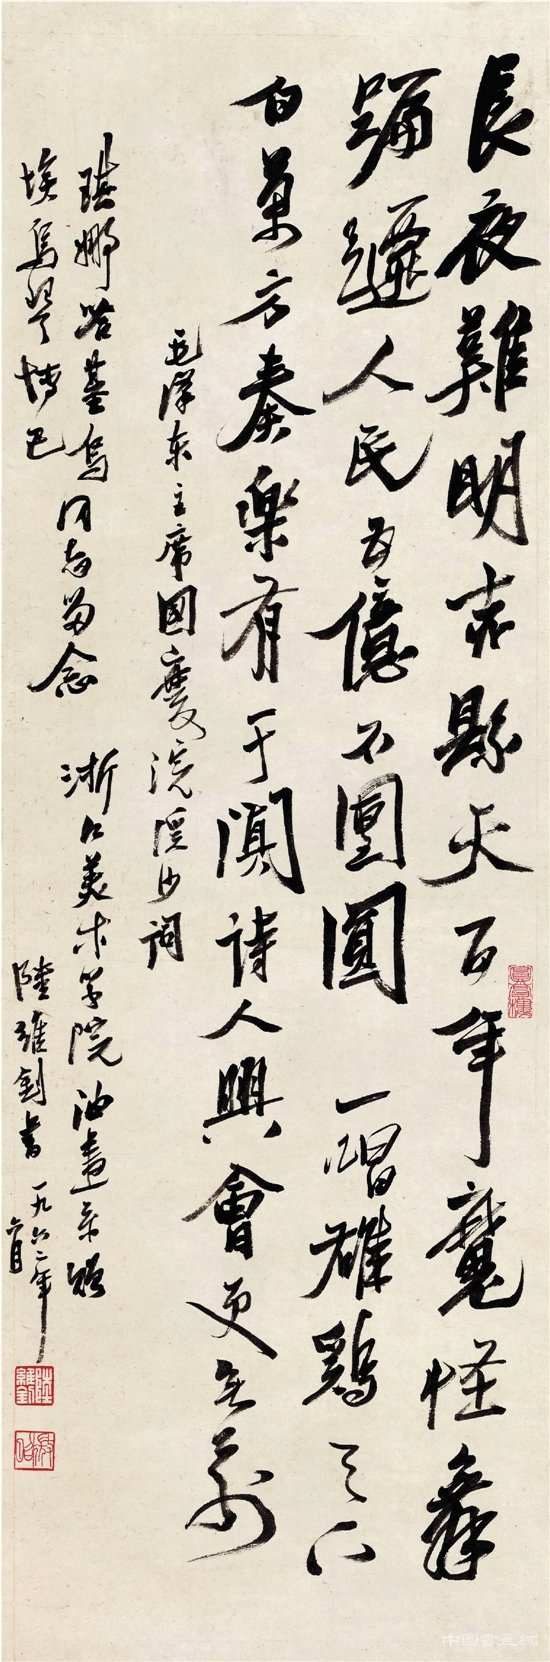 長夜難明赤縣天百年魔怪舞
蹁躚人民五億不團圓 一唱雄鷄天下
白萬方奏樂有于闐詩人興會更無前
毛澤东主席國慶浣溪沙詞
琪娜基烏
埃烏琴博巴
同志留念
浙江美术学院油畫系贈
陸維釗書 一九六二年
六月
陸維釗